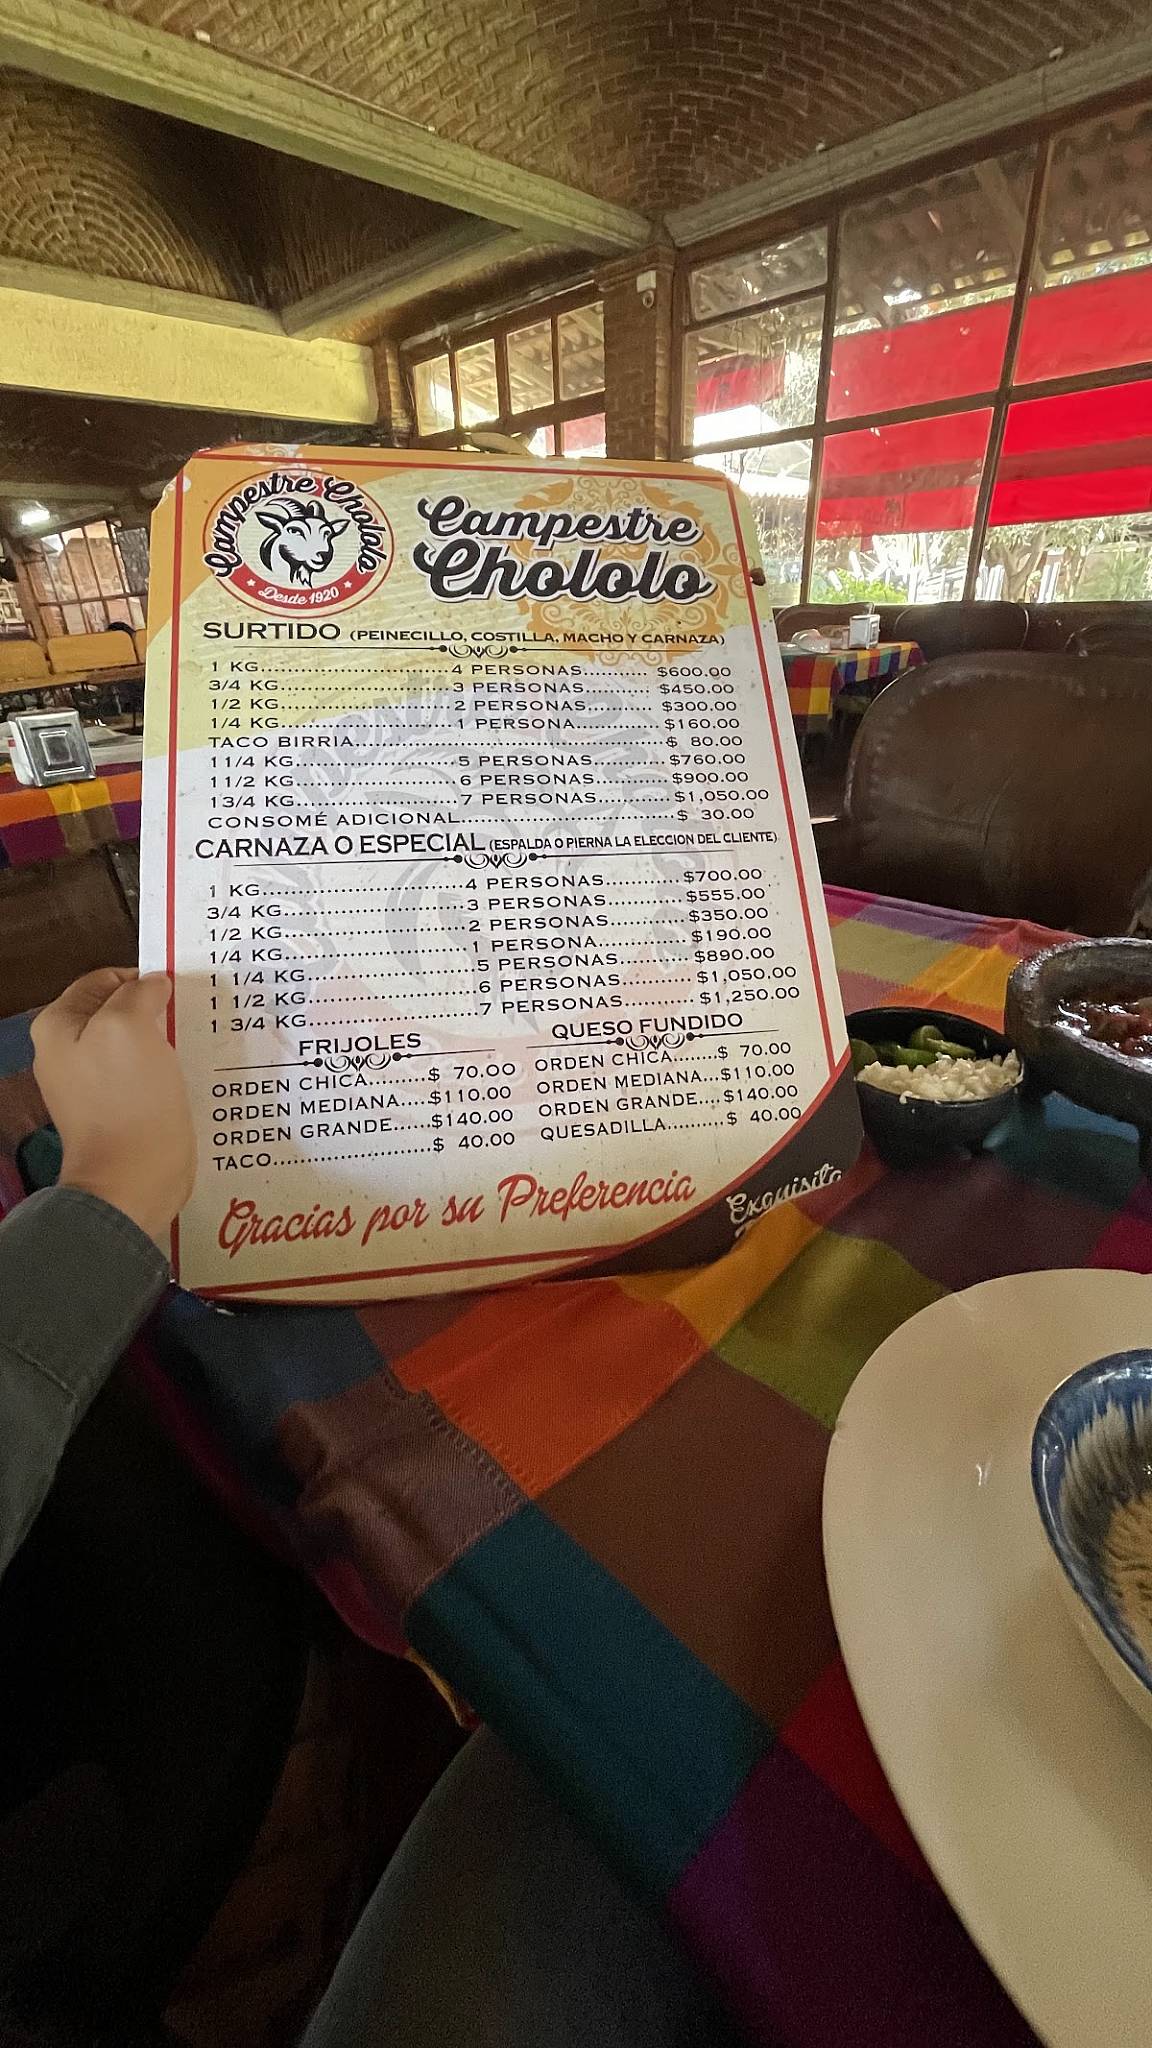 Campestre Chololo
Desde 1920
Campestre
Chololo
SURTIDO (PEINECILLO, COSTILLA, MACHO Y CARNAZA)
1 KG............................4 PERSONAS.......... $600.00
3/4 KG.........................3 PERSONAS.......... $450.00
1/2 KG.........................2 PERSONAS.......... $300.00
1/4 KG.........................1 PERSONA............ $160.00
TACO BIRRIA..............................................$ 80.00
1 1/4 KG........................5 PERSONAS...........$760.00
1 1/2 KG........................6 PERSONAS...........$900.00
1 3/4 KG........................7 PERSONAS...........$1,050.00
CONSOMÉ ADICIONAL................................$ 30.00
CARNAZA O ESPECIAL (ESPALDA O PIERNA LA ELECCION DEL CLIENTE)
1 KG..............................4 PERSONAS...........$700.00
3/4 KG..........................3 PERSONAS...........$555.00
1/2 KG..........................2 PERSONAS...........$350.00
1/4 KG..........................1 PERSONA.............$190.00
1 1/4 KG........................5 PERSONAS..........$890.00
1 1/2 KG........................6 PERSONAS..........$1,050.00
1 3/4 KG........................7 PERSONAS..........$1,250.00
FRIJOLES
ORDEN CHICA.........$ 70.00
ORDEN MEDIANA....$110.00
ORDEN GRANDE......$140.00
TACO........................$ 40.00
QUESO FUNDIDO
ORDEN CHICA.......$ 70.00
ORDEN MEDIANA...$110.00
ORDEN GRANDE....$140.00
QUESADILLA..........$ 40.00
Gracias por su Preferencia
Exquisita